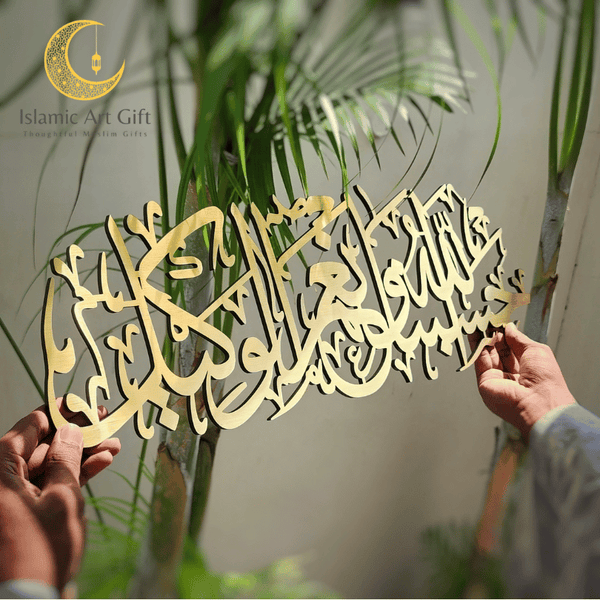 Islamic Art Gift
Thoughtful Muslim Gifts
حسبنا الله ونعم الوكيل